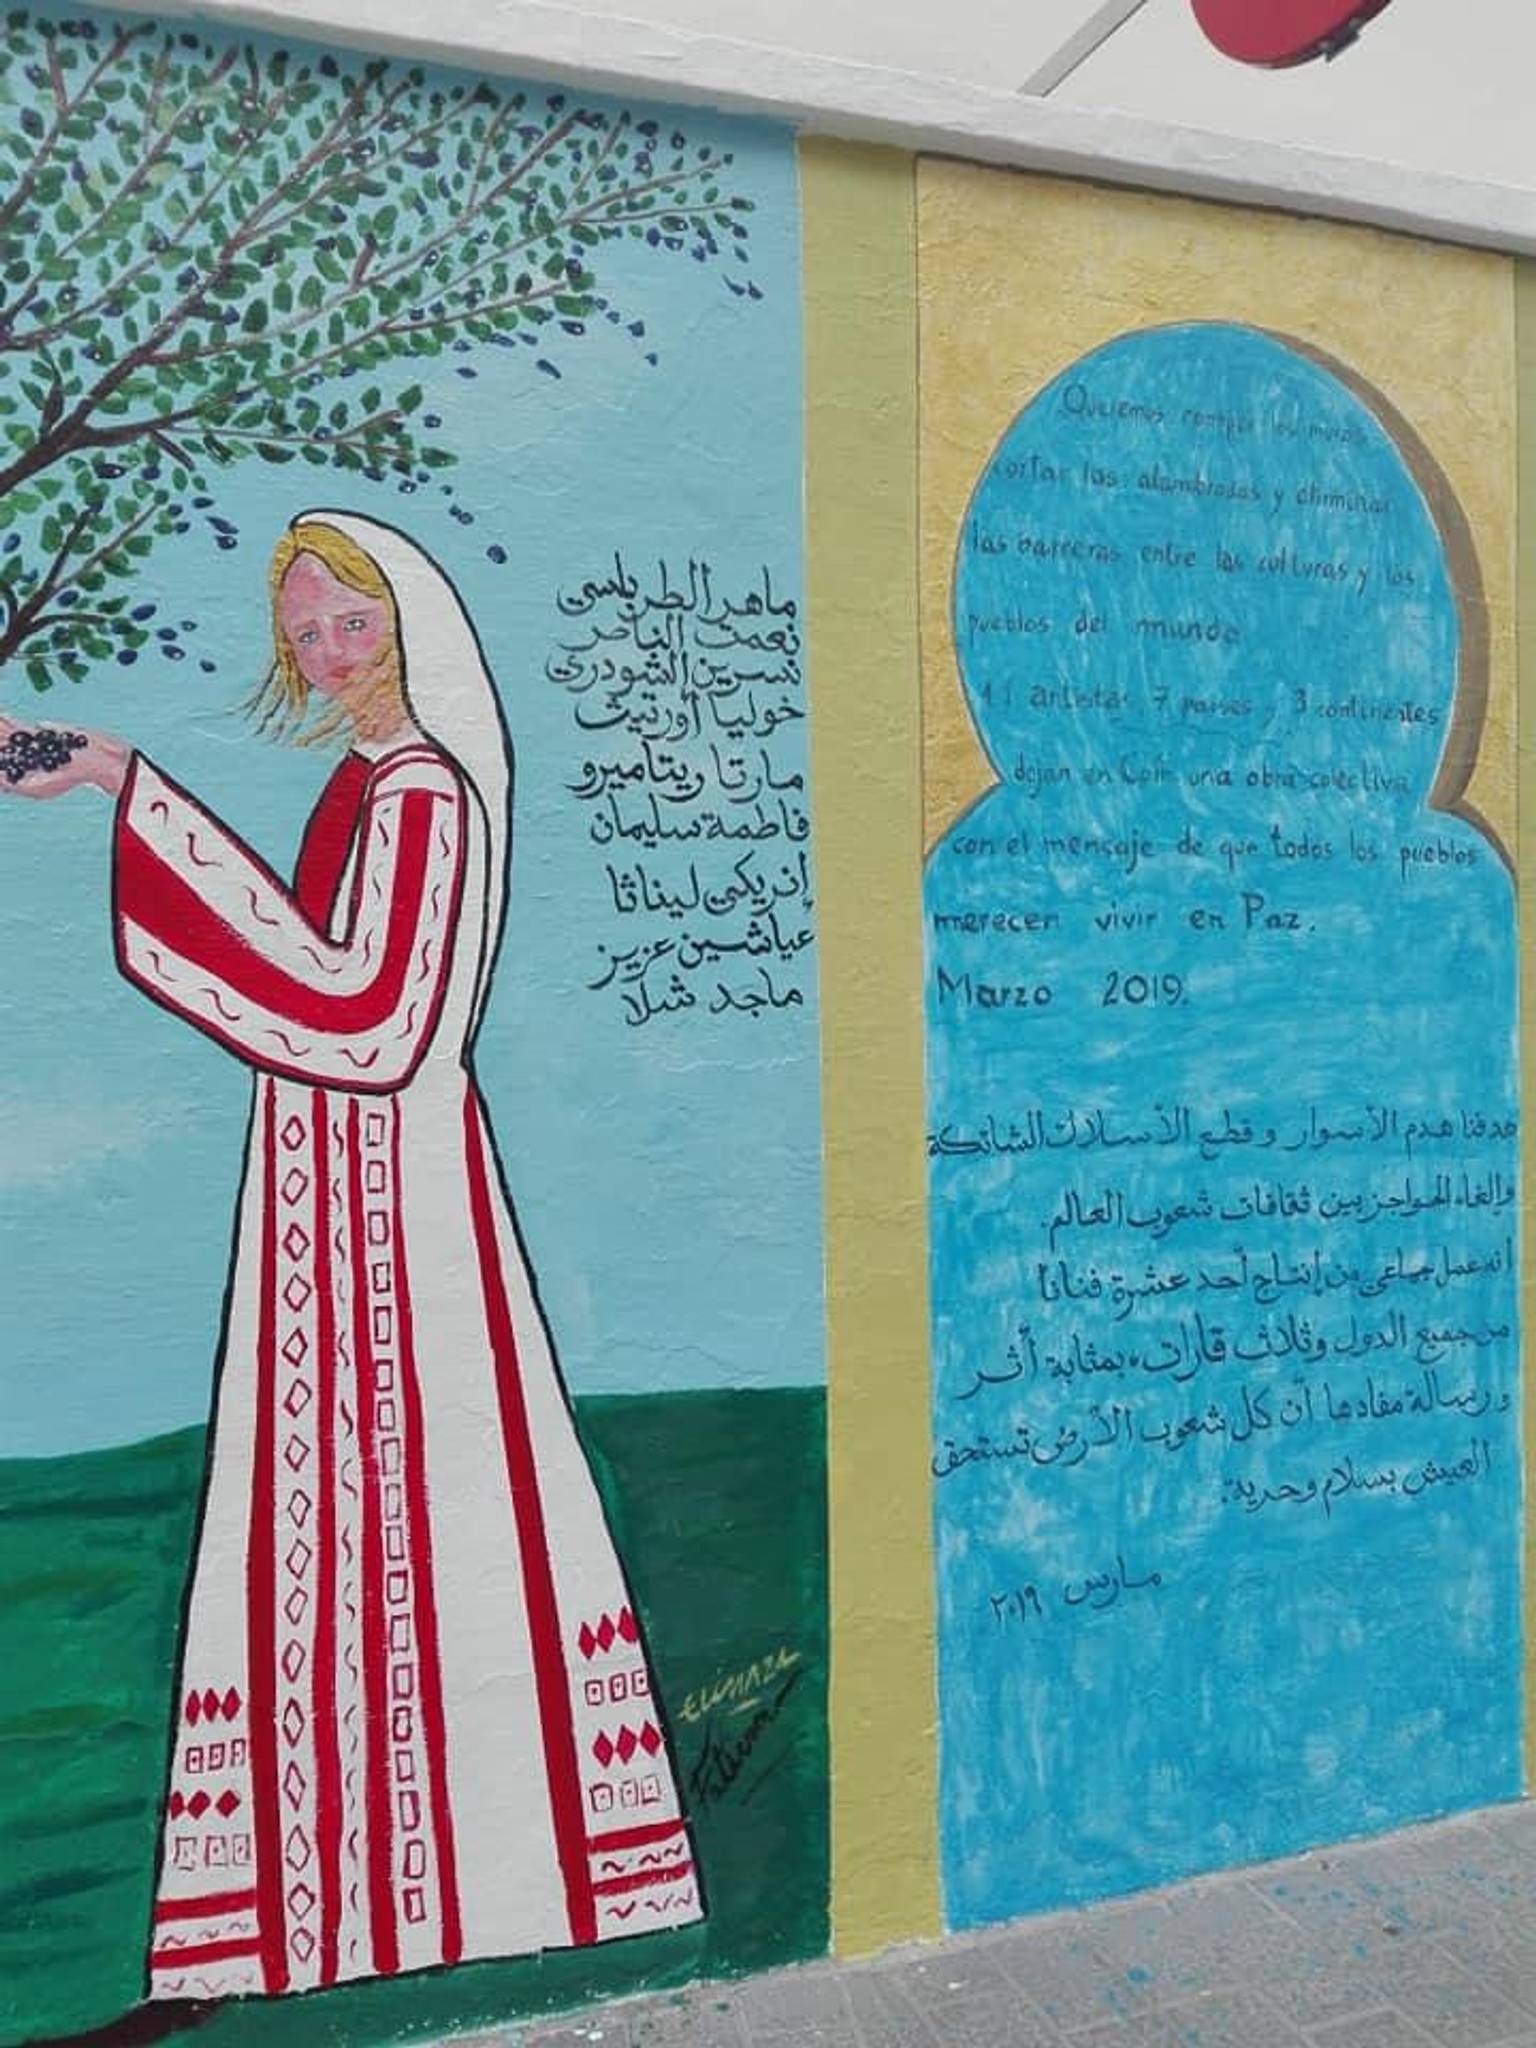 ماهر الطربلسي
نعمت الناصر
نسرين الشودري
خوليا أورتيث
مارتا ريتاميرو
فاطمة سليمان
إنريكي ليناثا
عياشين عزيز
ماجد شلا
ELINAZA
Queremos romper los muros,
cortar las alambradas y eliminar
las barreras entre las culturas y los
pueblos del mundo
11 artistas 7 paises y 3 continentes
dejan en Coín una obra colectiva
con el mensaje de que todos los pueblos
merecen vivir en Paz.
Marzo 2019.
هدفنا هدم الأسوار و قطع الأسلاك الشائكة
وإلغاء الحواجز بين ثقافات شعوب العالم.
انه عمل جماعي من إنتاج أحد عشرة فنانا
من جميع الدول وثلاث قارات، بمثابة أثر
ورسالة مفادها أن كل شعوب الأرض تستحق
العيش بسلام وحرية.
مارس ٢٠١٩